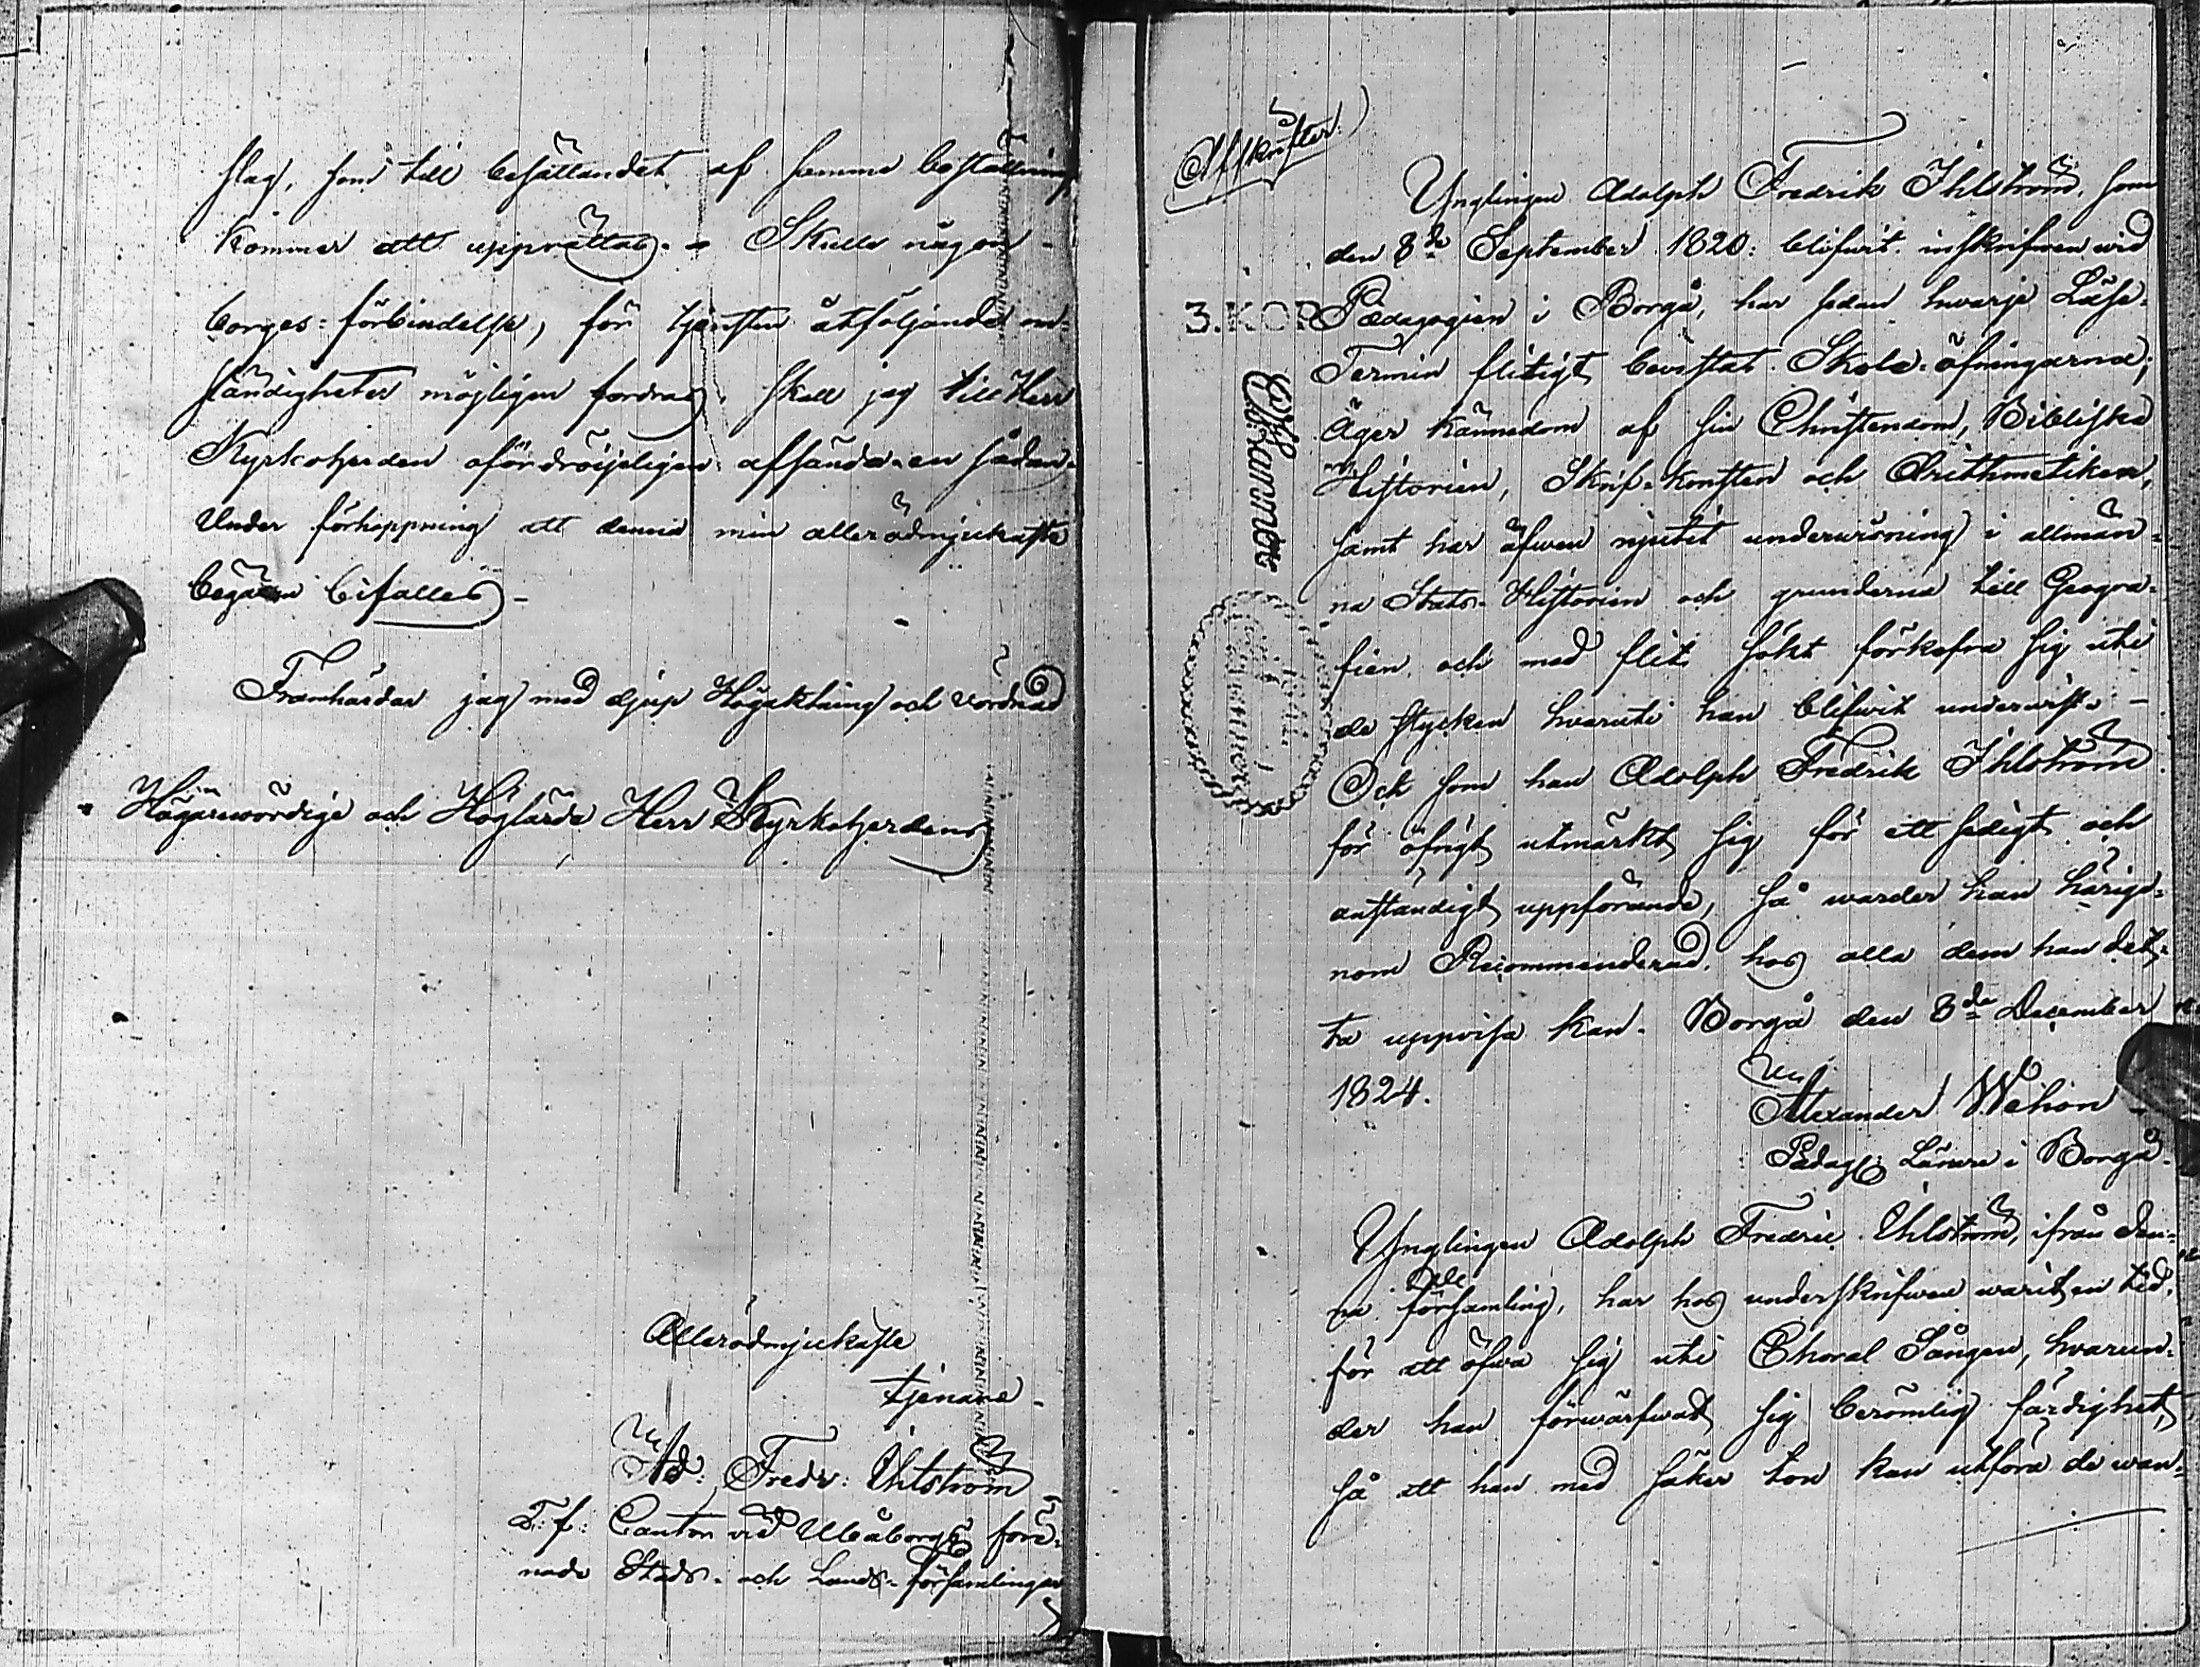 slag, som till besättandet af samma beställning
kommer att upprättas. - Skulle någon
borges-förbindelse, för tjensten åtföljande om-
ständigheter möjligen fordras, skall jag till Herr
Kyrkoherden ofördröijeligen afsända en sådan.
Under förhoppning att denna min allerödmjukaste
begäran bifalles -
Framhärdar jag med djup Högaktning och vördnad
Högärewördige och Höglärde Herr Kyrkoherdens
Allerödmjukaste
tjenare
Ad: Fredr: Uhlström
T. f. Cantor vid Uleåborgs före-
nade Stads- och Lands-församlingar
Afskrifter:
Ynglingen Adolph Fredrik Ihlström, som
den 8de September 1820: blifwit inskrifwen wid
3. KOP
Pædagogien i Borgå, har sedan hwarje Läse-
Termin flitigt bevistat Skole-öfningarna;
Äger kännedom af sin Christendom, Bibliska
Historien, Skrif-konsten och Arithmetiken,
samt har äfwen njutit underwisning i allmän-
na Stats-Historien och grunderna till Geogra-
fien, och med flit sökt förkofra sig uti
de stycken hvaruti han blifwit underwist. -
Och som han Adolph Fredrik Ihlström
för öfrigt utmärkt sig för ett sedigt och
anständigt uppförande, så warder han härige-
nom Recommenderad hos alla dem han det-
ta uppvisa kan. Borgå den 8de December
1824.
Alexander Wehion
Pædag: Lärare i Borgå.
Ynglingen Adolph Fredric Uhlström, ifrån den-
na församling, har hos underskrifwen warit en tid,
för att öfwa sig uti Choral Sången, hvarun-
der han förwärfwat sig berömlig färdighet,
så att han med säker ton kan utföra de wan-